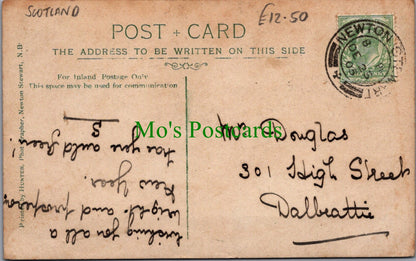 SCOTLAND
£12-50
POST + CARD
THE ADDRESS TO BE WRITTEN ON THIS SIDE
For Inland Postage Only
This space may be used for communication
Printed by HUNTER, Photographer, Newton Stewart, N.B.
NEWTON STEWART
Mo's Postcards
Douglas
301 High Street
Dalbeattie
Wishing you all a
bright and prosperous
New Year.
far you auld yin!
S